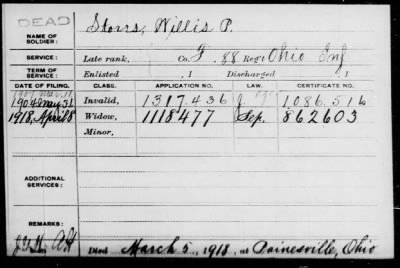 DEAD
NAME OF SOLDIER: Storrs, Willis P.
SERVICE: Late rank, Co. F, 88 Reg't Ohio Inf
TERM OF SERVICE: Enlisted , 1 Discharged , 1
DATE OF FILING. CLASS. APPLICATION NO. LAW. CERTIFICATE NO.
1904 May 31 Invalid, 1317.436 1.086.516
1918, April 8 Widow, 1118477 Sep. 862603
Minor,
ADDITIONAL SERVICES:
REMARKS:
Died March 5, 1918, at Painesville, Ohio